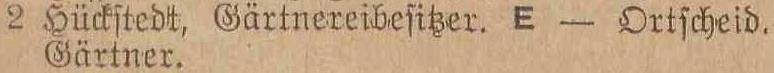 2 Hückstedt, Gärtnereibesitzer. E — Ortscheid.
Gärtner.